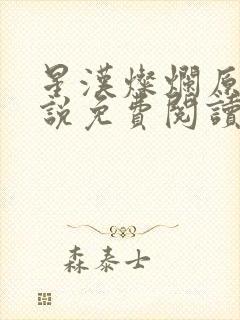 星漢燦爛原
說免費閱讀
森泰士